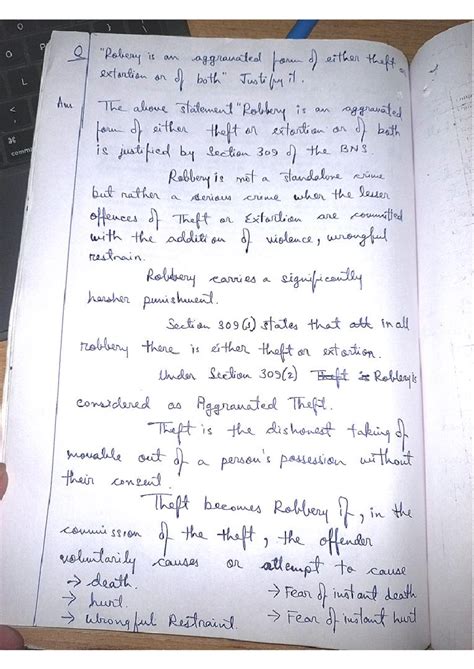 Q "Robery is an aggravated form of either theft or
extortion or of both" Justify it.
Ans The above statement "Robbery is an aggravated
form of either theft or extortion or of both
is justified by Section 309 of the BNS
Robbery is not a standalone crime
but rather a serious crime when the lesser
offences of Theft or Extortion are committed
with the addition of violence, wrongful
restrain.
Robbery carries a significently
harsher punishment.
Section 309(1) states that in all
robbery there is either theft or extortion.
Under Section 309(2) Robbery is
considered as Aggravated Theft.
Theft is the dishonest taking of
movable out of a person's possession without
their consent.
Theft becomes Robbery if, in the
commission of the theft, the offender
voluntarily causes or attempt to cause
→ death. → Fear of instant death
→ hurt. → Fear of instant hurt
→ Wrongful Restraint.
command